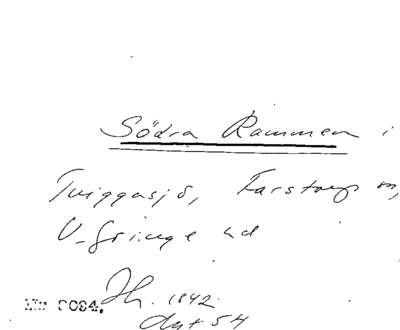 Södra Rammen i
Tviggasjö, Farstorp sn,
V. Göinge hd
Jh. 1842
akt 54